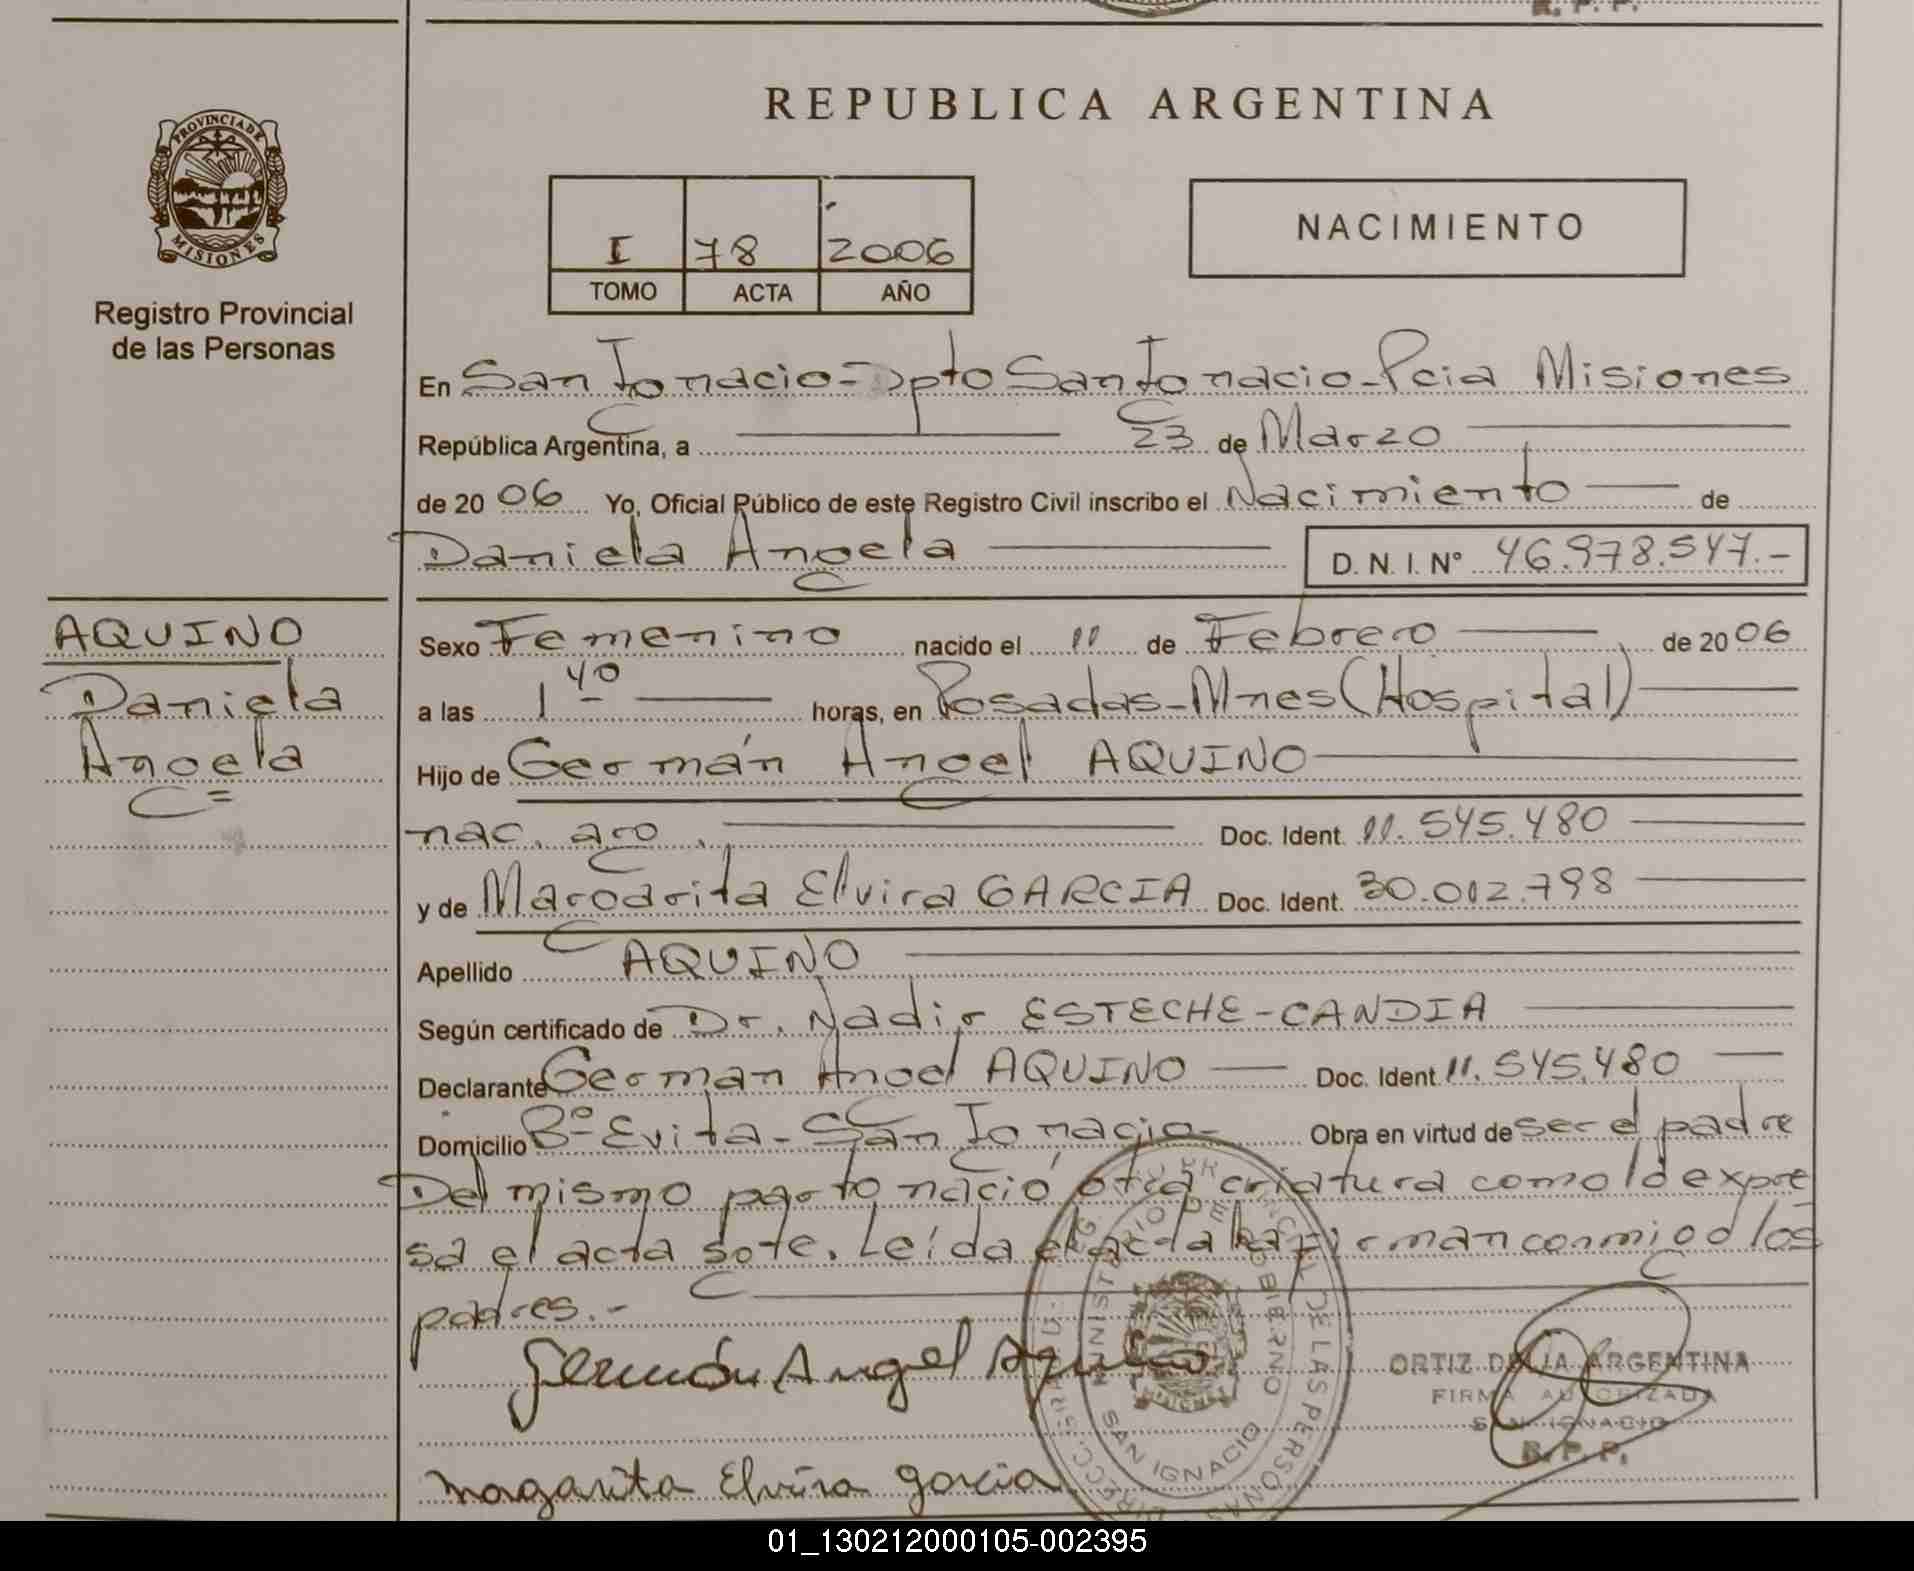 R. P. P.
REPUBLICA ARGENTINA
PROVINCIA DE
MISIONES
Registro Provincial
de las Personas
I 78 2006
TOMO ACTA AÑO
NACIMIENTO
En San Ignacio - Dpto San Ignacio - Pcia Misiones
República Argentina, a 23 de Marzo
de 2006 Yo, Oficial Público de este Registro Civil inscribo el Nacimiento de
Daniela Angela D. N. I. Nº 46.978.547.-
AQUINO
Daniela
Angela
Sexo Femenino nacido el 11 de Febrero de 2006
a las 1 40 horas, en Posadas - Mnes (Hospital)
Hijo de Germán Angel AQUINO
nac. arg. Doc. Ident. 11.545.480
y de Margarita Elvira GARCIA Doc. Ident. 30.012.798
Apellido AQUINO
Según certificado de Dr. Nadir ESTECHE-CANDIA
Declarante German Angel AQUINO Doc. Ident 11.545.480
Domicilio Bº Evita - San Ignacio - Obra en virtud de ser el padre
Del mismo parto nació otra criatura como lo expre
sa el acta sgte. Leída el acta la firman conmigo los
padres.-
Germán Angel Aquino
Margarita Elvira Garcia
MINISTERIO DE GOBIERNO
DE LAS PERSONAS
SAN IGNACIO
ORTIZ DELIA ARGENTINA
FIRMA AUTORIZADA
SAN IGNACIO
R. P. P.
01_130212000105-002395